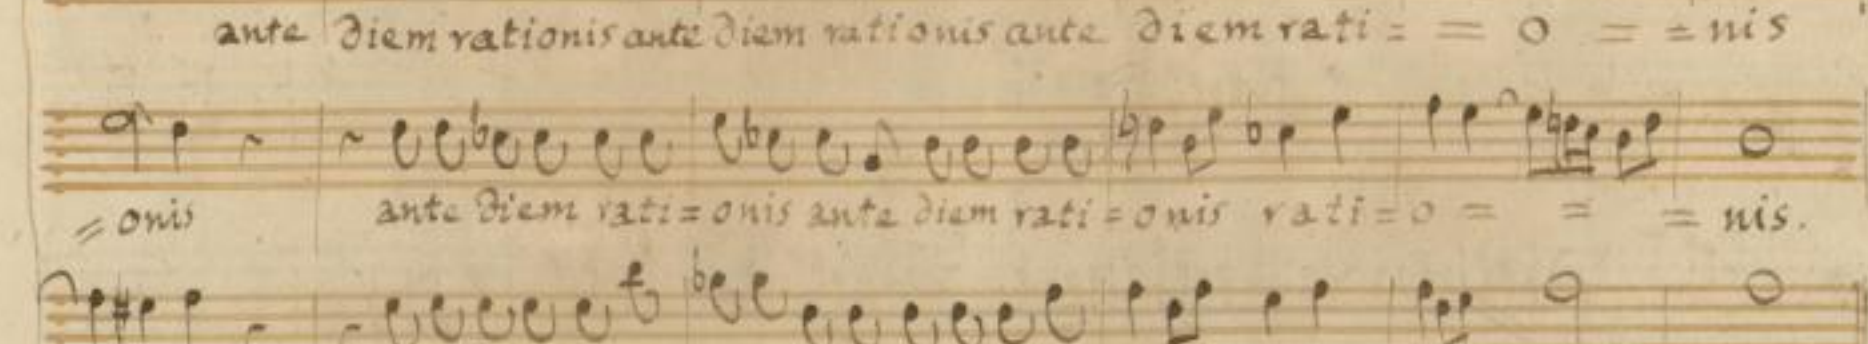 ante diem rationis ante diem rationis ante diem rati = = o = = nis
= onis ante diem rati = onis ante diem rati = onis rati = o = = = nis.